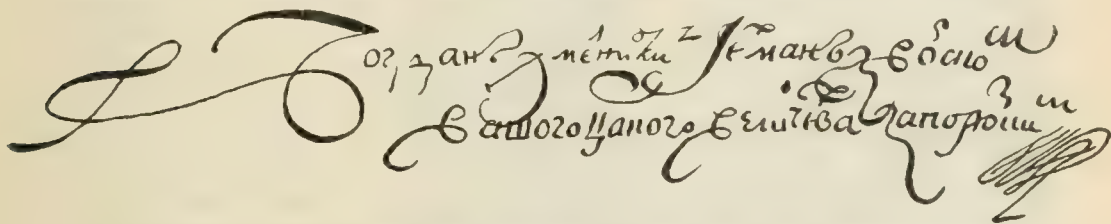 Богданъ Хмелницкий Гетманъ з Войском
Вашого Царского Величства Запорозким